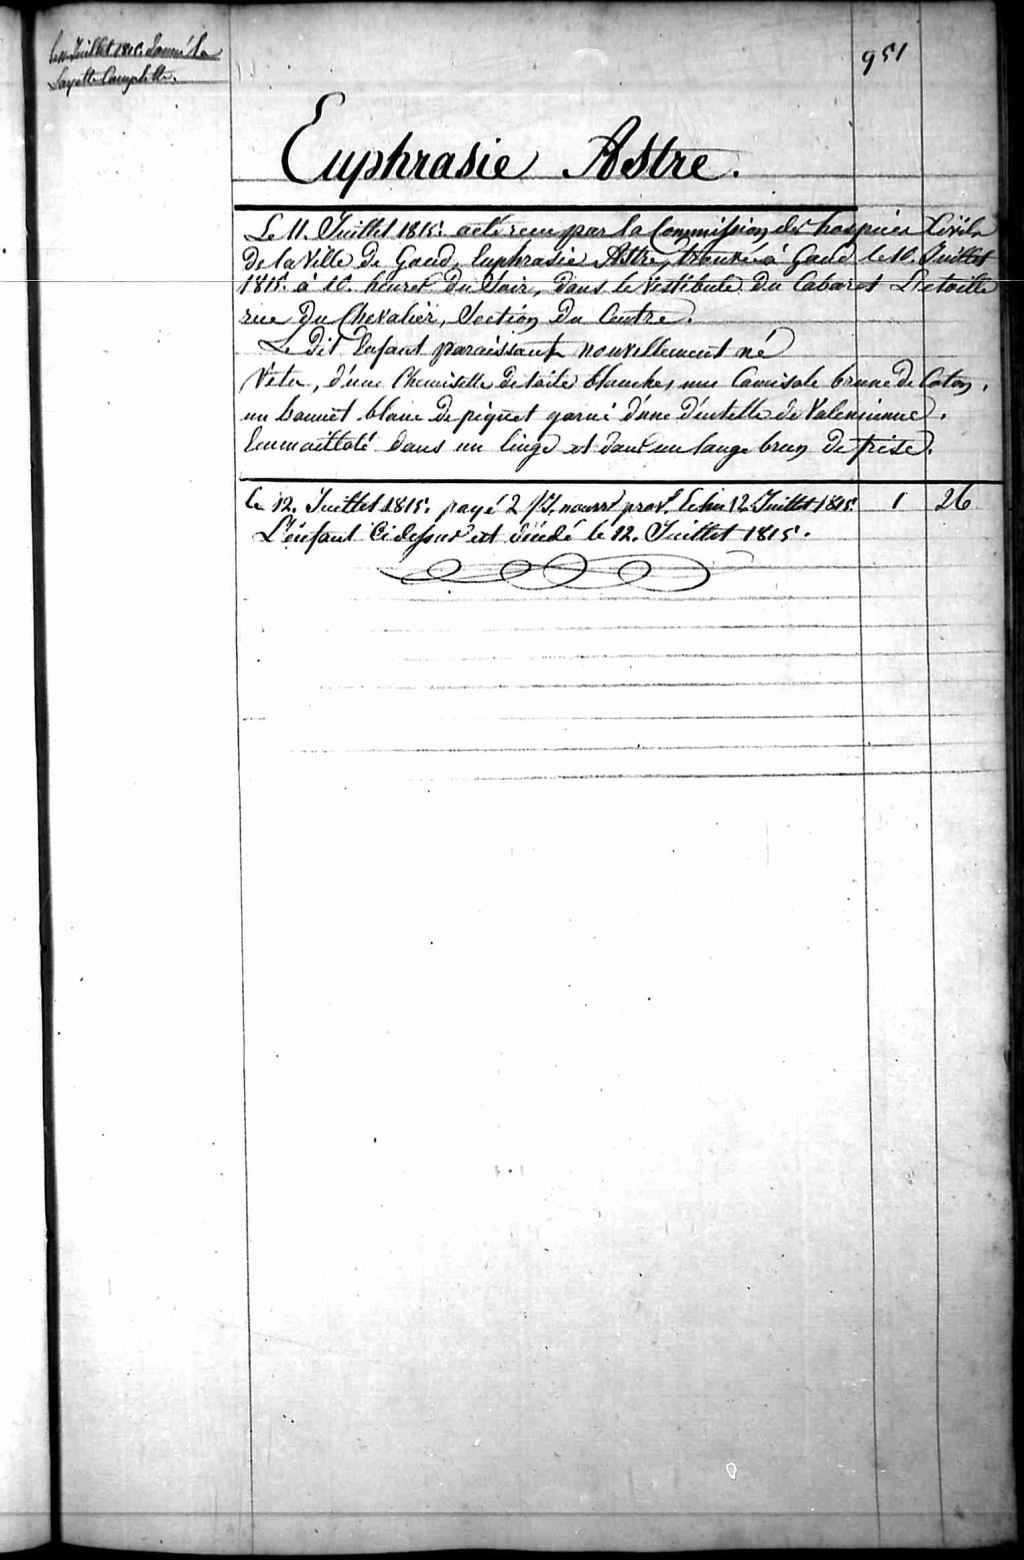 le 11 Juillet 1815. donné la
Layette Complette.
951
Euphrasie Astre.
Le 11. Juillet 1815. a été reçu par la Commission des hospices Civils
De la Ville de Gand, Euphrasie Astre, trouvée à Gand le 10. Juillet
1815. à 10. heures du Soir, dans le Vestibule du Cabaret L'etoille
rue du Chevalier, Section du Centre.
Le dit Enfant paraissant nouvellement né
Vetu, d'une Chemisette de toile blanche, une Camisole brune de Coton,
un bonnet blanc de piquet garni d'une dentelle de Valencienne,
Emmailloté dans un linge et dans un lange brun de frise.
Le 12. Juillet 1815. payé 2 js. nourre prove. Echu 12 Juillet 1815. 1 26
L'enfant Cidessus est décédé le 12. Juillet 1815.